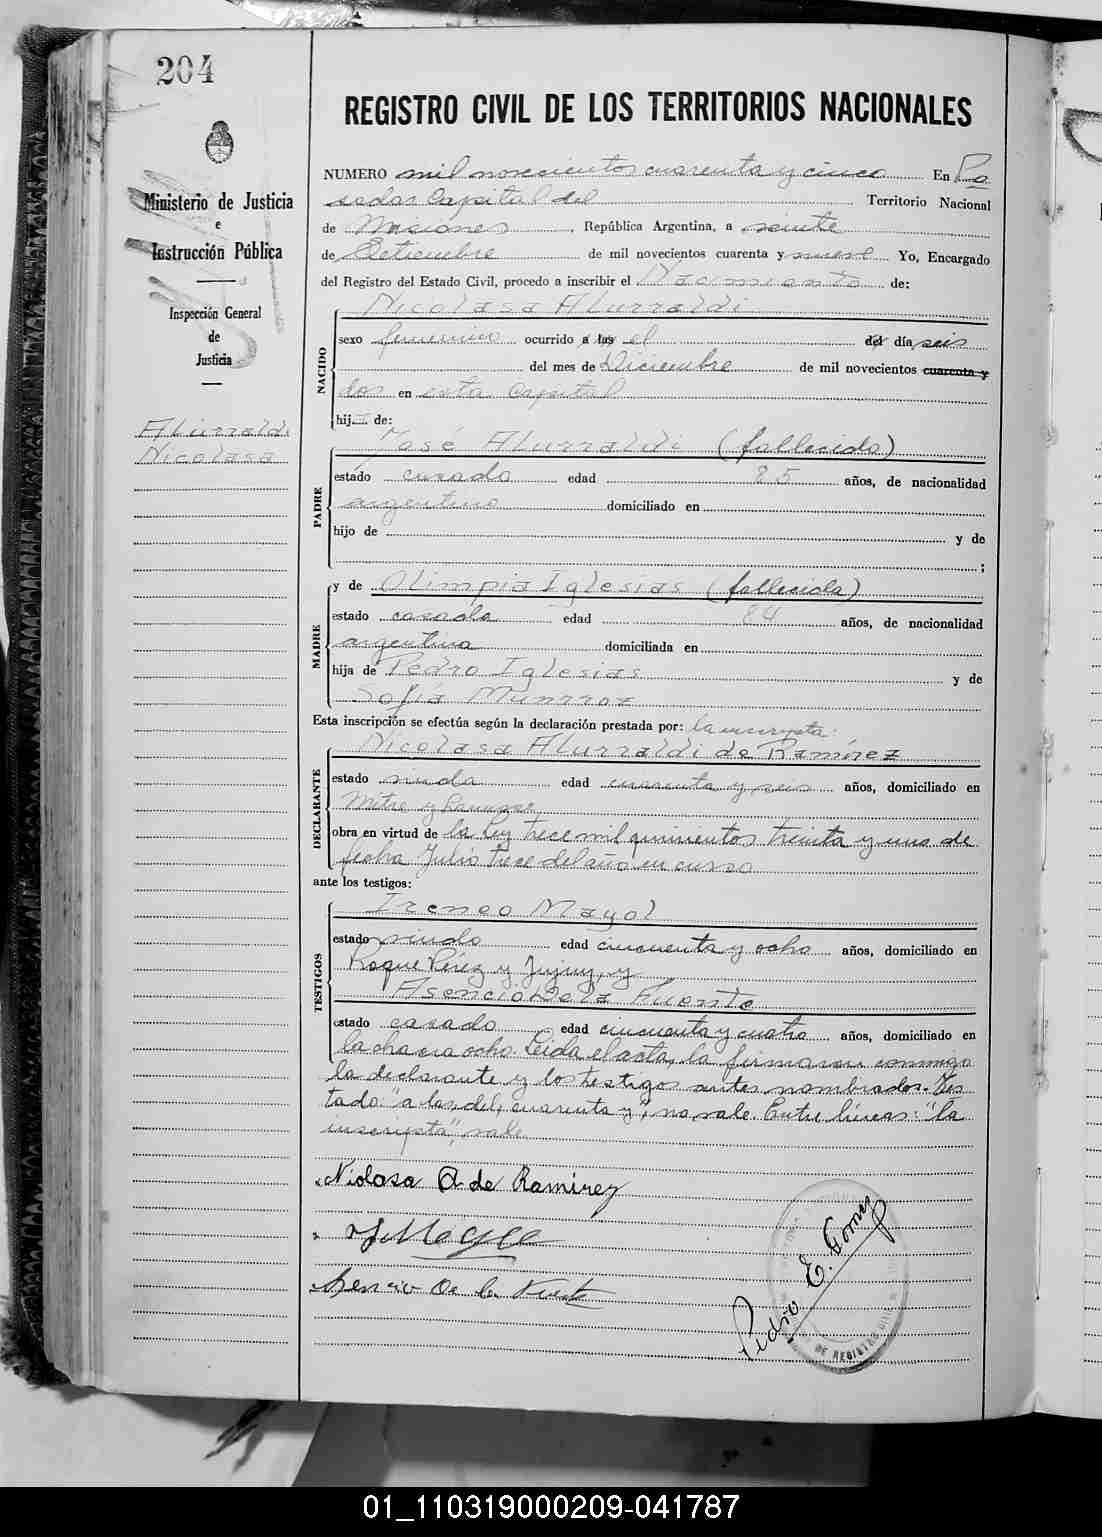 204
REGISTRO CIVIL DE LOS TERRITORIOS NACIONALES
Ministerio de Justicia
e
Instrucción Pública
Inspección General
de
Justicia
Alurraldi
Nicolasa
NUMERO mil novecientos cuarenta y cinco En Po
sadas Capital del Territorio Nacional
de Misiones, República Argentina, a veinte
de Setiembre de mil novecientos cuarenta y nueve Yo, Encargado
del Registro del Estado Civil, procedo a inscribir el Nacimiento de:
NACIDO
Nicolasa Alurraldi
sexo femenino ocurrido a las el del día seis
del mes de Diciembre de mil novecientos cuarenta y
dos en esta Capital
hij de:
PADRE
José Alurraldi (fallecido)
estado casado edad 85 años, de nacionalidad
argentino domiciliado en
hijo de y de
;
MADRE
y de Olimpia Iglesias (fallecida)
estado casada edad 84 años, de nacionalidad
argentina domiciliada en
hija de Pedro Iglesias y de
Sofía Munrroz
Esta inscripción se efectúa según la declaración prestada por: la inscripta:
DECLARANTE
Nicolasa Alurraldi de Ramírez
estado viuda edad cuarenta y seis años, domiciliado en
Mitre y
obra en virtud de la Ley trece mil quinientos treinta y uno de
fecha Julio trece del año en curso
ante los testigos:
TESTIGOS
Ireneo Mayol
estado viudo edad cincuenta y ocho años, domiciliado en
Roque Pérez y Jujuy, y
Asencio Dela Fuente
estado casado edad cincuenta y cuatro años, domiciliado en
la chacra ocho. Leida el acta, la firmaron conmigo
la declarante y los testigos antes nombrados. Tes
tado: "a las, del, cuarenta y", no vale. Entre líneas: "la
inscripta", vale.
Niolasa A de Ramirez
Asencio De la Fuente
Pedro E. Gomez
DE REGISTRO CIVIL
01_110319000209-041787